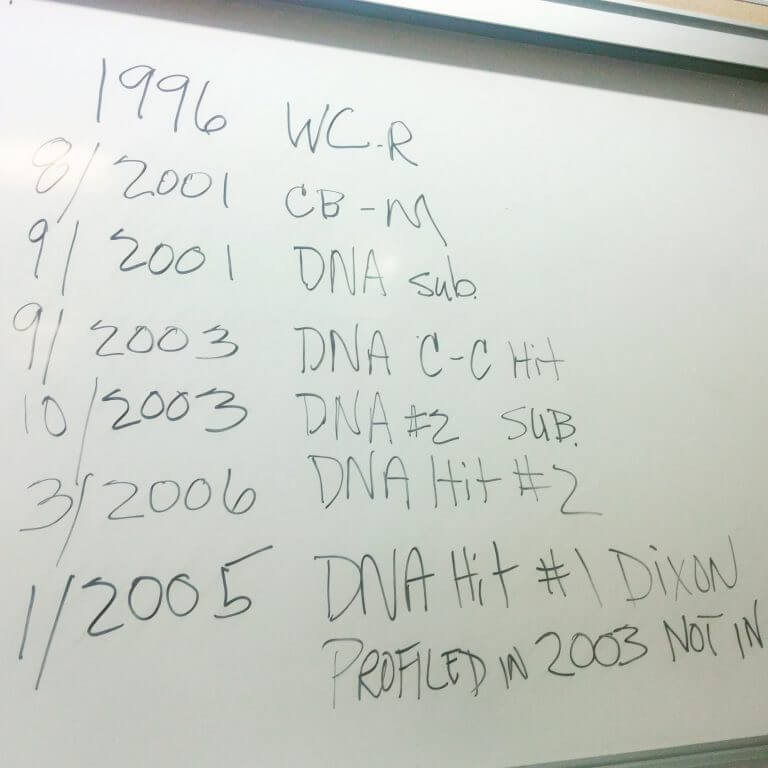 1996 WC-R
8/2001 CB-M
9/2001 DNA sub.
9/2003 DNA C-C Hit
10/2003 DNA #2 SUB.
3/2006 DNA Hit #2
1/2005 DNA Hit #1 DIXON
PROFILED IN 2003 NOT IN